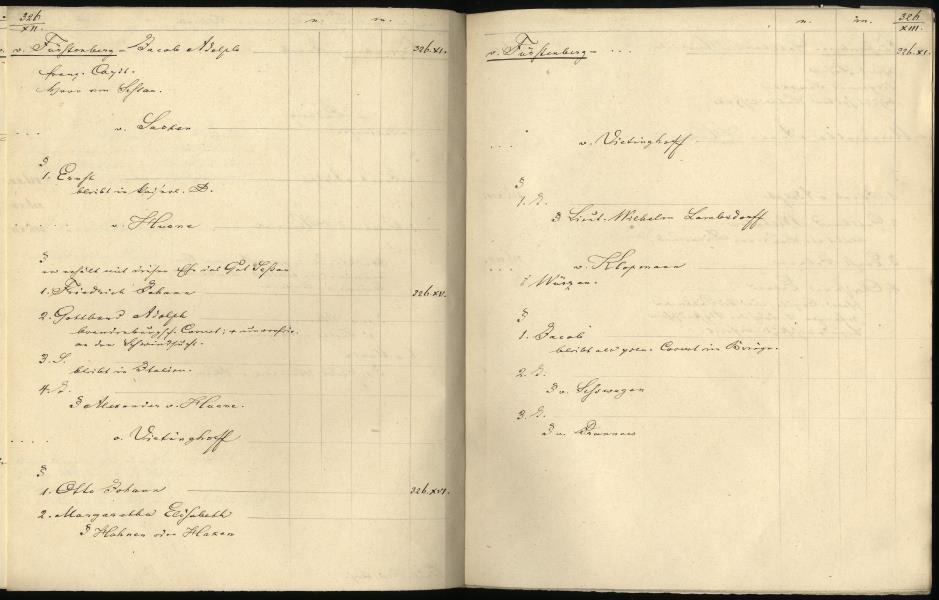 326
XII.
n. m.
v. Fürstenberg - Jacob Adolph 326.XI.
franz. Capit.
Herr von Seßau.
. . . . v. Sacken
§
1. Ernst
bleibt in Kaiserl. D.
. . . . v. Huene
§
er erhält mit dieser Ehe das Gut Seßau
1. Friedrich Johann 326.XV.
2. Gotthard Adolph
brandenburgsch. Cornet; + unverehr.
an der Schwindsucht.
3. S.
bleibt in Italien.
4. T.
§ Alexander v. Huene.
. . . . v. Vietinghoff
§
1. Otto Johann 326.XVI.
2. Margaretha Elisabeth
§ Hahnen oder Haxen
n. m.
326
XIII.
v. Fürstenberg - . . . 326.XI.
. . . v. Vietinghoff
§
1. T.
§ Lieut. Wilhelm Lambsdorff
. . . v. Klopmann
Würzen.
§
1. Jacob
bleibt als poln. Cornet im Kriege.
2. T.
§ v. Sesswegen
3. T.
§ v.